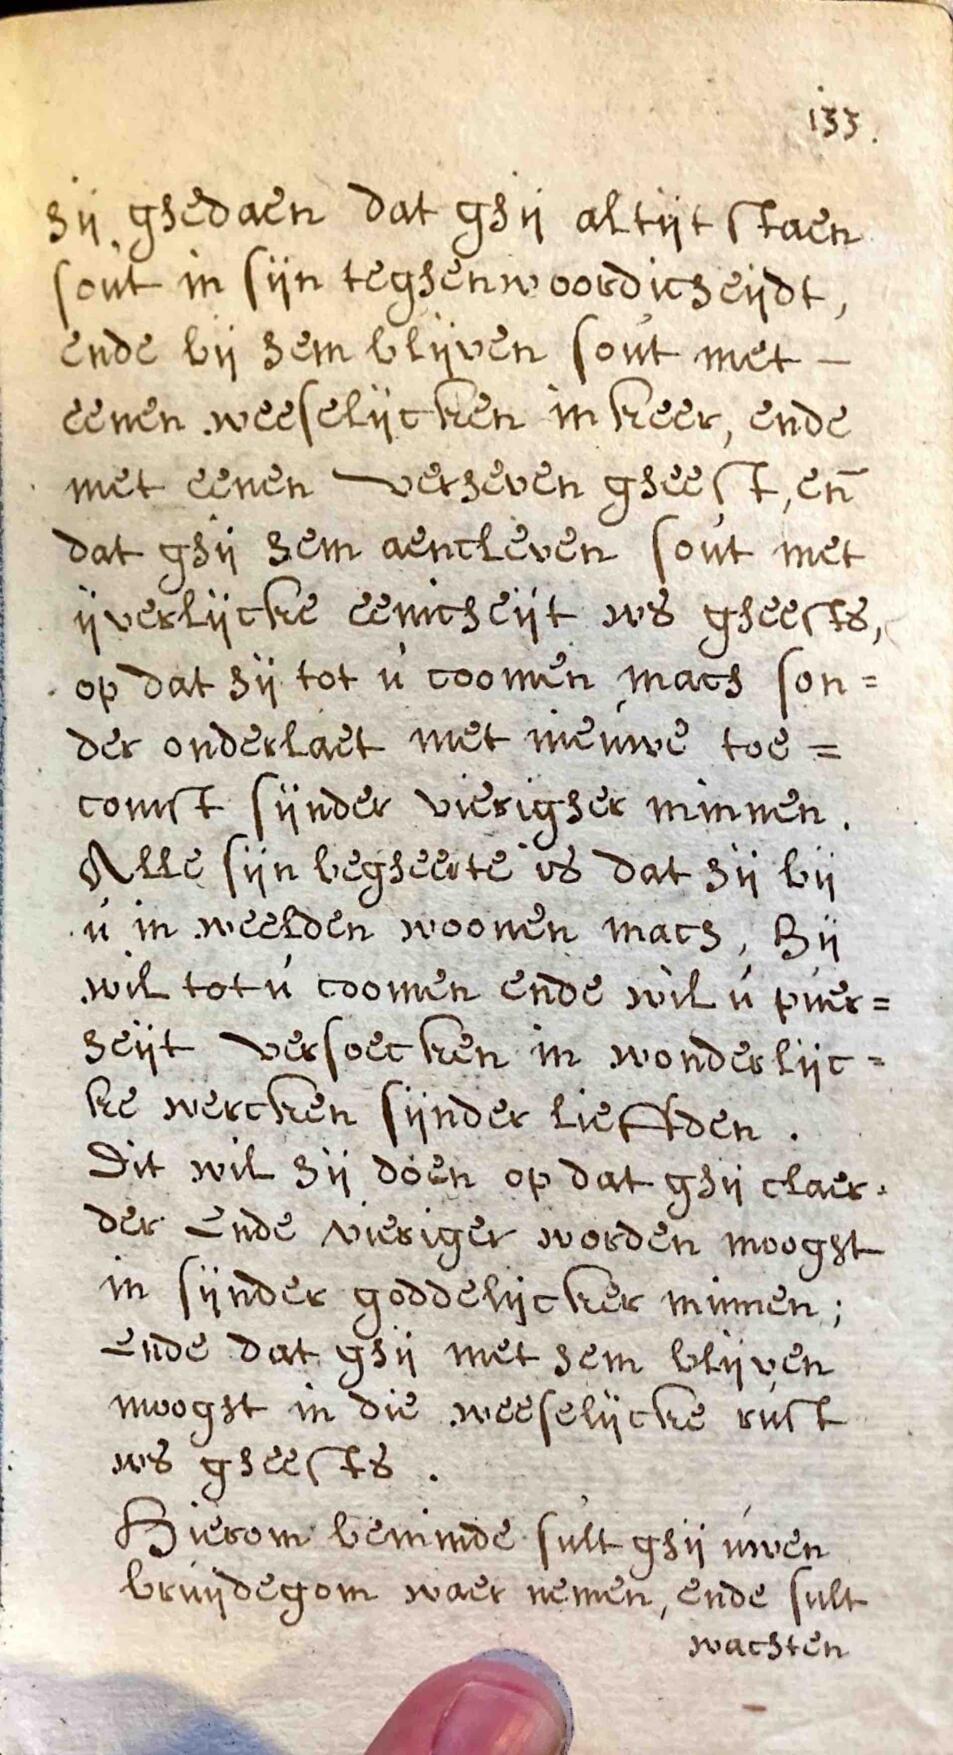 133.
hij ghedaen dat ghij altijt staen
sout in sijn teghenwoordicheijdt,
ende bij hem blijven sout met –
eenen weeselijcken inkeer, ende
met eenen verheven gheest, en̄
dat ghij hem aencleven sout met
ijverlijcke eenicheijt ws gheests,
op dat hij tot ú coomen mach son=
der onderlaet met nieuwe toe=
comst sijnder vierigher minnen.
Alle sijn begheerte is dat hij bij
ú in weelden woonen mach, Hij
wil tot ú coomen ende wil ú puer=
heijt versoecken in wonderlijc=
ke wercken sijnder liefften.
Dit wil hij doen op dat ghij claer=
der Ende vieriger worden mooght
in sijnder goddelijcker minnen;
Ende dat ghij met hem blijven
mooght in die weeselijcke rust
ws gheests.
Hierom beminde sult ghij úwen
bruijdegom waer nemen, ende sult
wachten